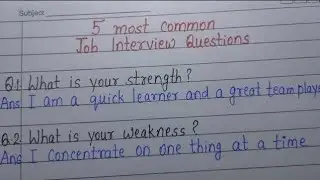 Subject
5 most common
Job Interview Questions
Q.1 What is your strength?
Ans I am a quick learner and a great team playe
Q.2 What is your weakness?
Ans I concentrate on one thing at a time